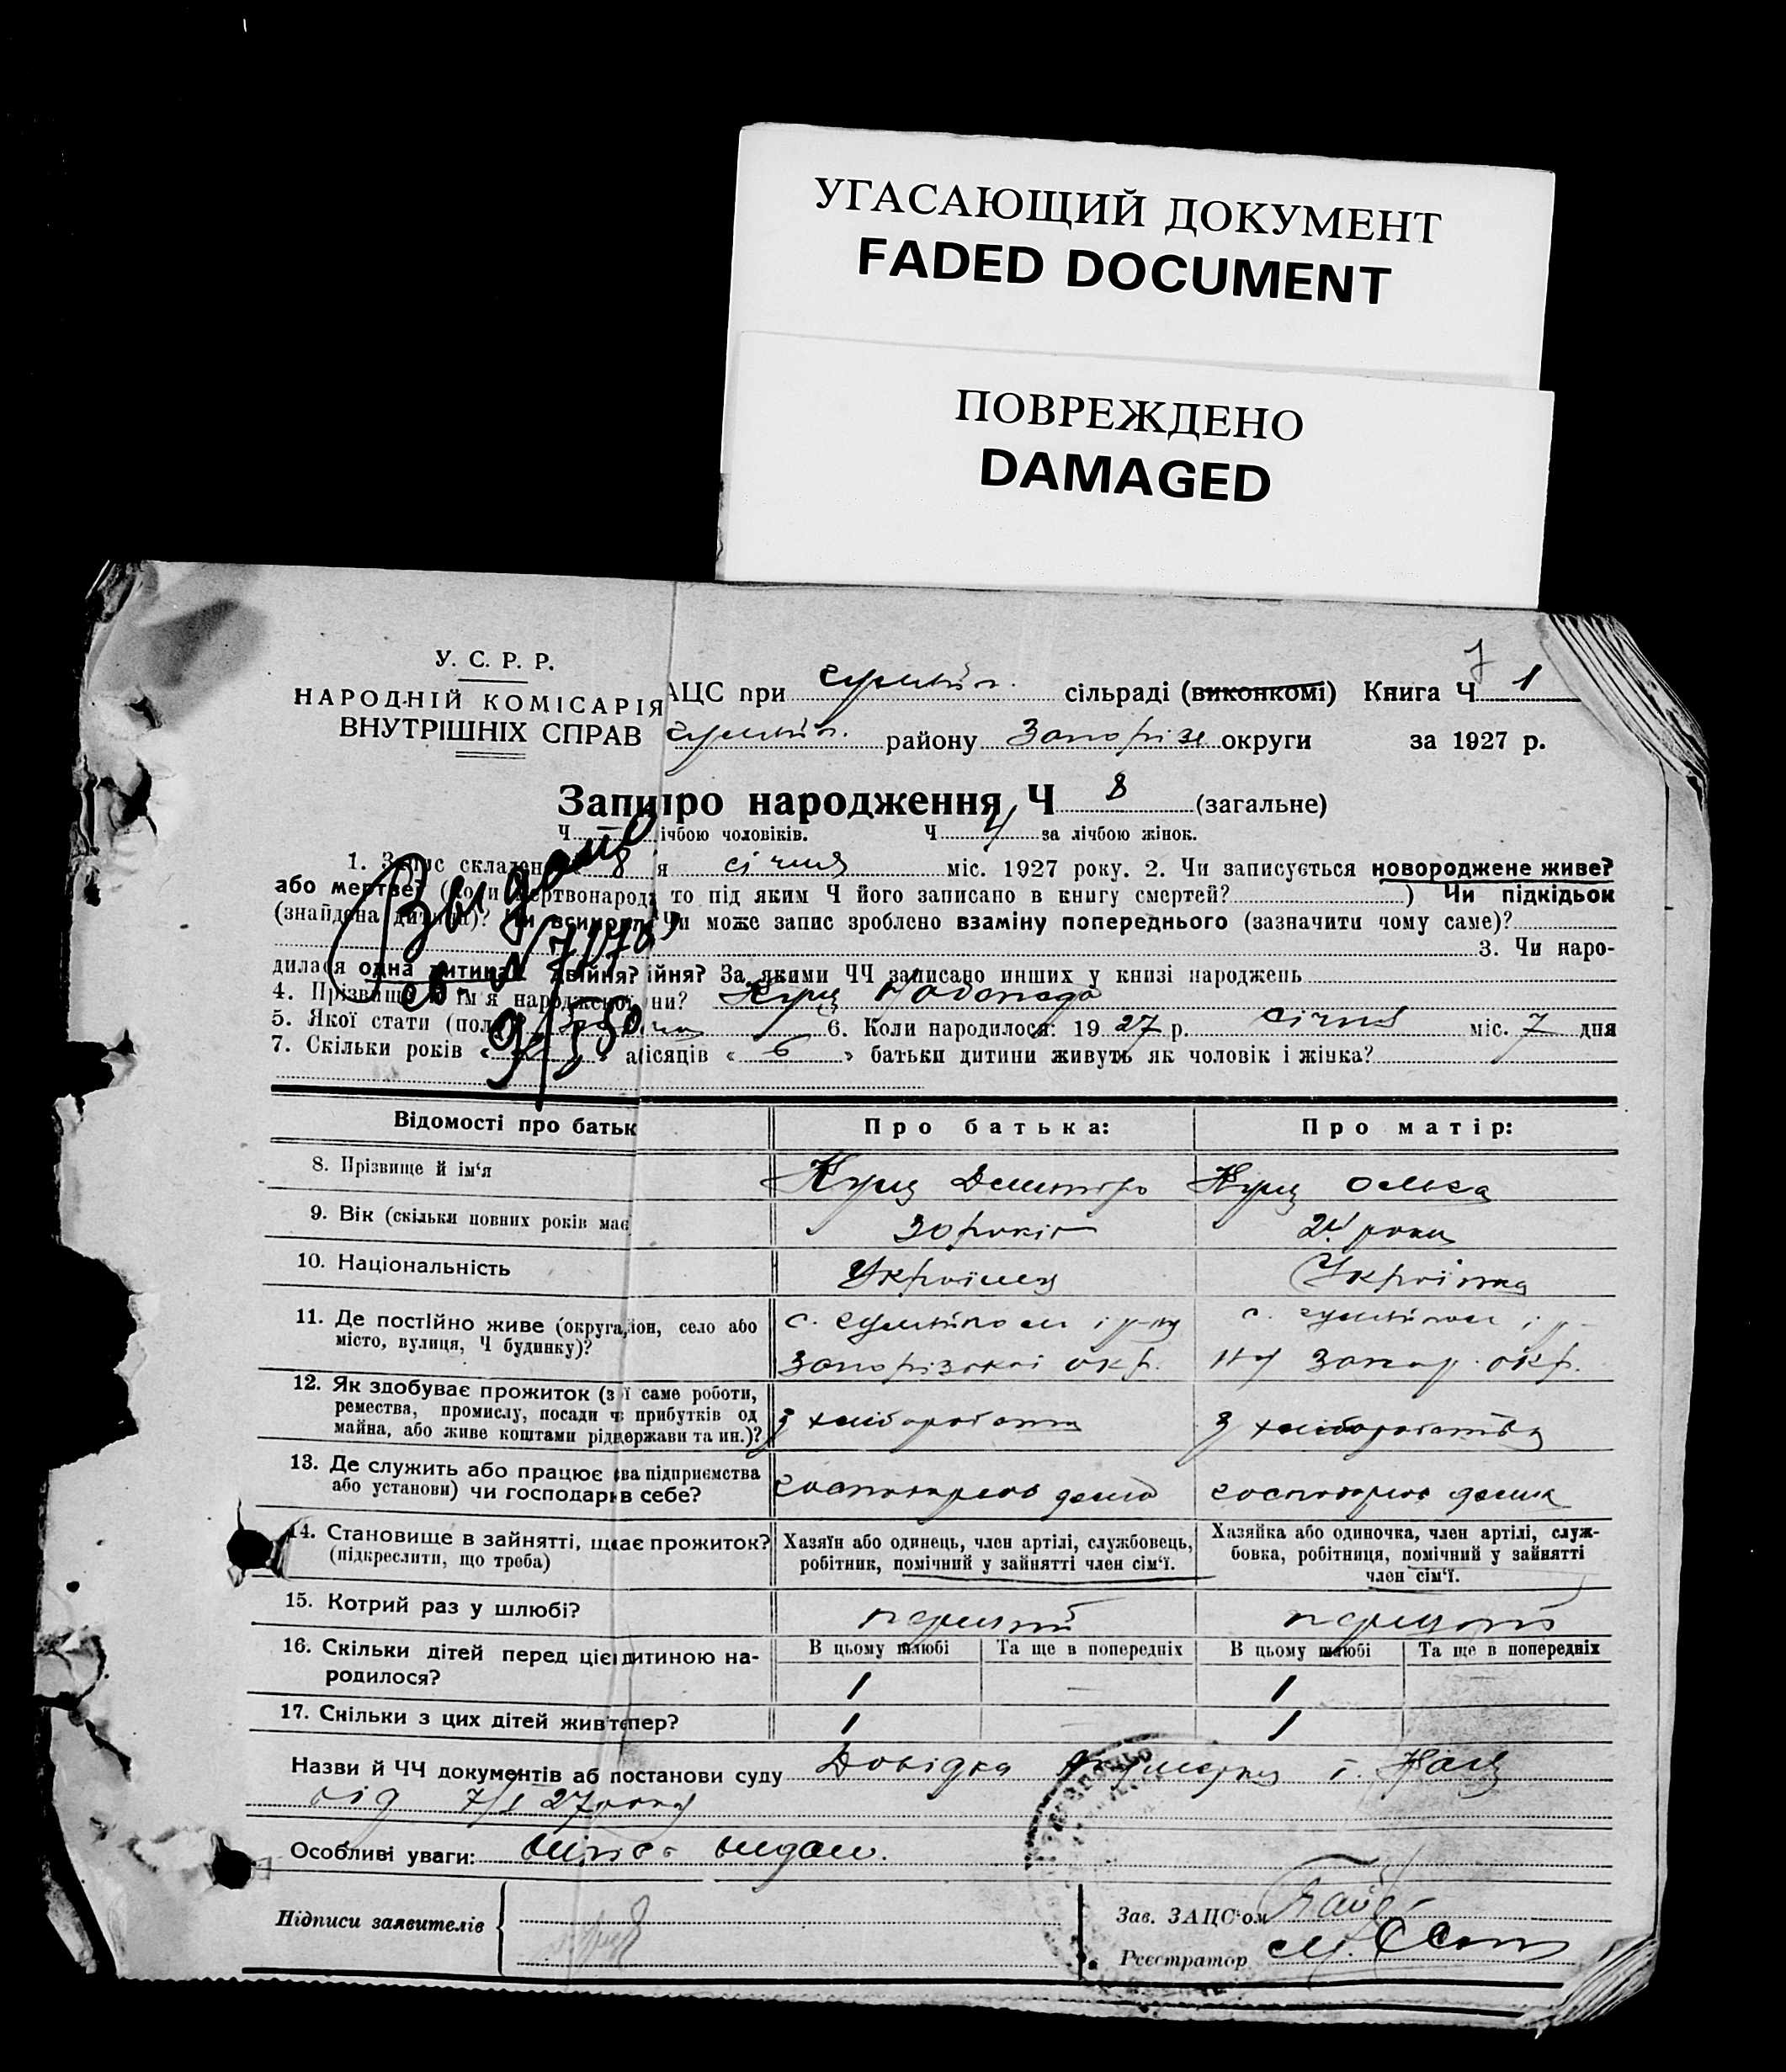 УГАСАЮЩИЙ ДОКУМЕНТ
FADED DOCUMENT
ПОВРЕЖДЕНО
DAMAGED
У. С. Р. Р.
НАРОДНІЙ КОМІСАРІЯ
ВНУТРІШНІХ СПРАВ
АЦС при сільраді (виконкомі) Книга Ч 1
району Запорізь округи за 1927 р.
Запи про народження Ч 8 (загальне)
Ч лічбою чоловіків. Ч 4 за лічбою жінок.
1. Запис складен 8 я січня міс. 1927 року. 2. Чи записується новороджене живе?
або мертве? то під яким Ч його записано в книгу смертей? ) Чи підкідьок
(знайдена дитина)? Чи може запис зроблено взаміну попереднього (зазначити чому саме)?
3. Чи наро-
дилася одна дитина? двійня? ійня? За якими ЧЧ записано инших у книзі народжень
4. Прізвище й ім'я народженої ни? Куц
5. Якої стати (пол 6. Коли народилося: 19 27 р. січня міс. 7 дня
7. Скільки років « » місяців « 6 » батьки дитини живуть як чоловік і жінка?
Видано
9/5 50
Відомості про батьк Про батька: Про матір:
8. Прізвище й ім'я Куц Дмитро Куц Ольга
9. Вік (скільки повних років має 30 років 24 роки
10. Національність Українец Українка
11. Де постійно живе (округа, йон, село або
місто, вулиця, Ч будинку)? Запорізької окр. Запор. окр.
12. Як здобуває прожиток (з ї саме роботи,
ремества, промислу, посади ч прибутків од
майна, або живе коштами рід держави та ин.)? з хліборобства з хліборобства
13. Де служить або працює ва підприємства
або установи) чи господарює в себе? господарює дома господарює дома
14. Становище в зайнятті, щ ає прожиток? Хазяїн або одинець, член артілі, службовець, Хазяйка або одиночка, член артілі, служ-
(підкреслити, що треба) робітник, помічний у зайнятті член сім'ї. бовка, робітниця, помічний у зайнятті
член сім'ї.
15. Котрий раз у шлюбі? перший перший
16. Скільки дітей перед цією дитиною на- В цьому шлюбі Та ще в попередніх В цьому шлюбі Та ще в попередніх
родилося? 1 — 1 —
17. Скільки з цих дітей жив тепер? 1 — 1
Назви й ЧЧ документів аб постанови суду Довідка
від 7/I 27 року
Особливі уваги: видан.
Підписи заявителів
Зав. ЗАЦС'ом
Реєстратор